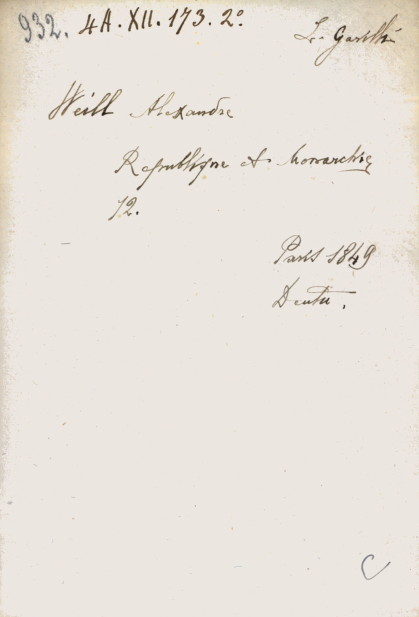 932. 4A. XII. 173. 2º
Weill Alexandre
République et Monarchie
12.
Paris 1849
Dentu.
C